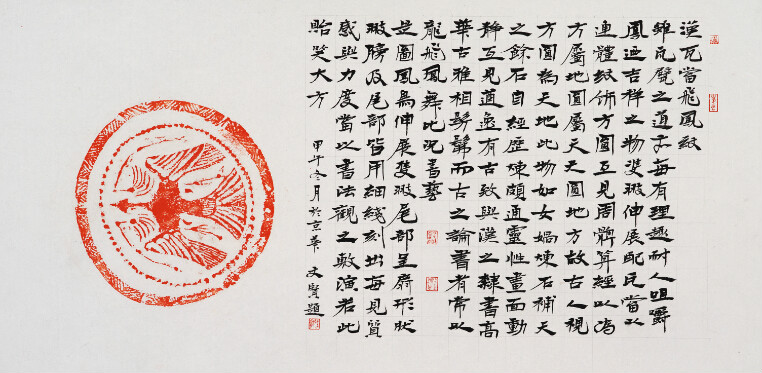 漢瓦當飛鳳紋
雖瓦甓之道亦每有理趣耐人咀嚼
鳳迺吉祥之物雙翅伸展配瓦當以
連體紋飾方圓互見周髀算經以為
方屬地圓屬天天圓地方故古人視
方圓為天地此物如女媧煉石補天
之餘石自經歷煉頗通靈性畫面動
靜互見遒逸有古致與漢之隸書高
華古雅相髣髴而古之論書者常以
龍飛鳳舞比況書藝
是圖鳳鳥伸展雙翅尾部呈扇形狀
翅膀及尾部皆用細綫刻出每見質
感與力度當以書法觀之敷演若此
貽笑大方
甲午冬月於京華 文賢題